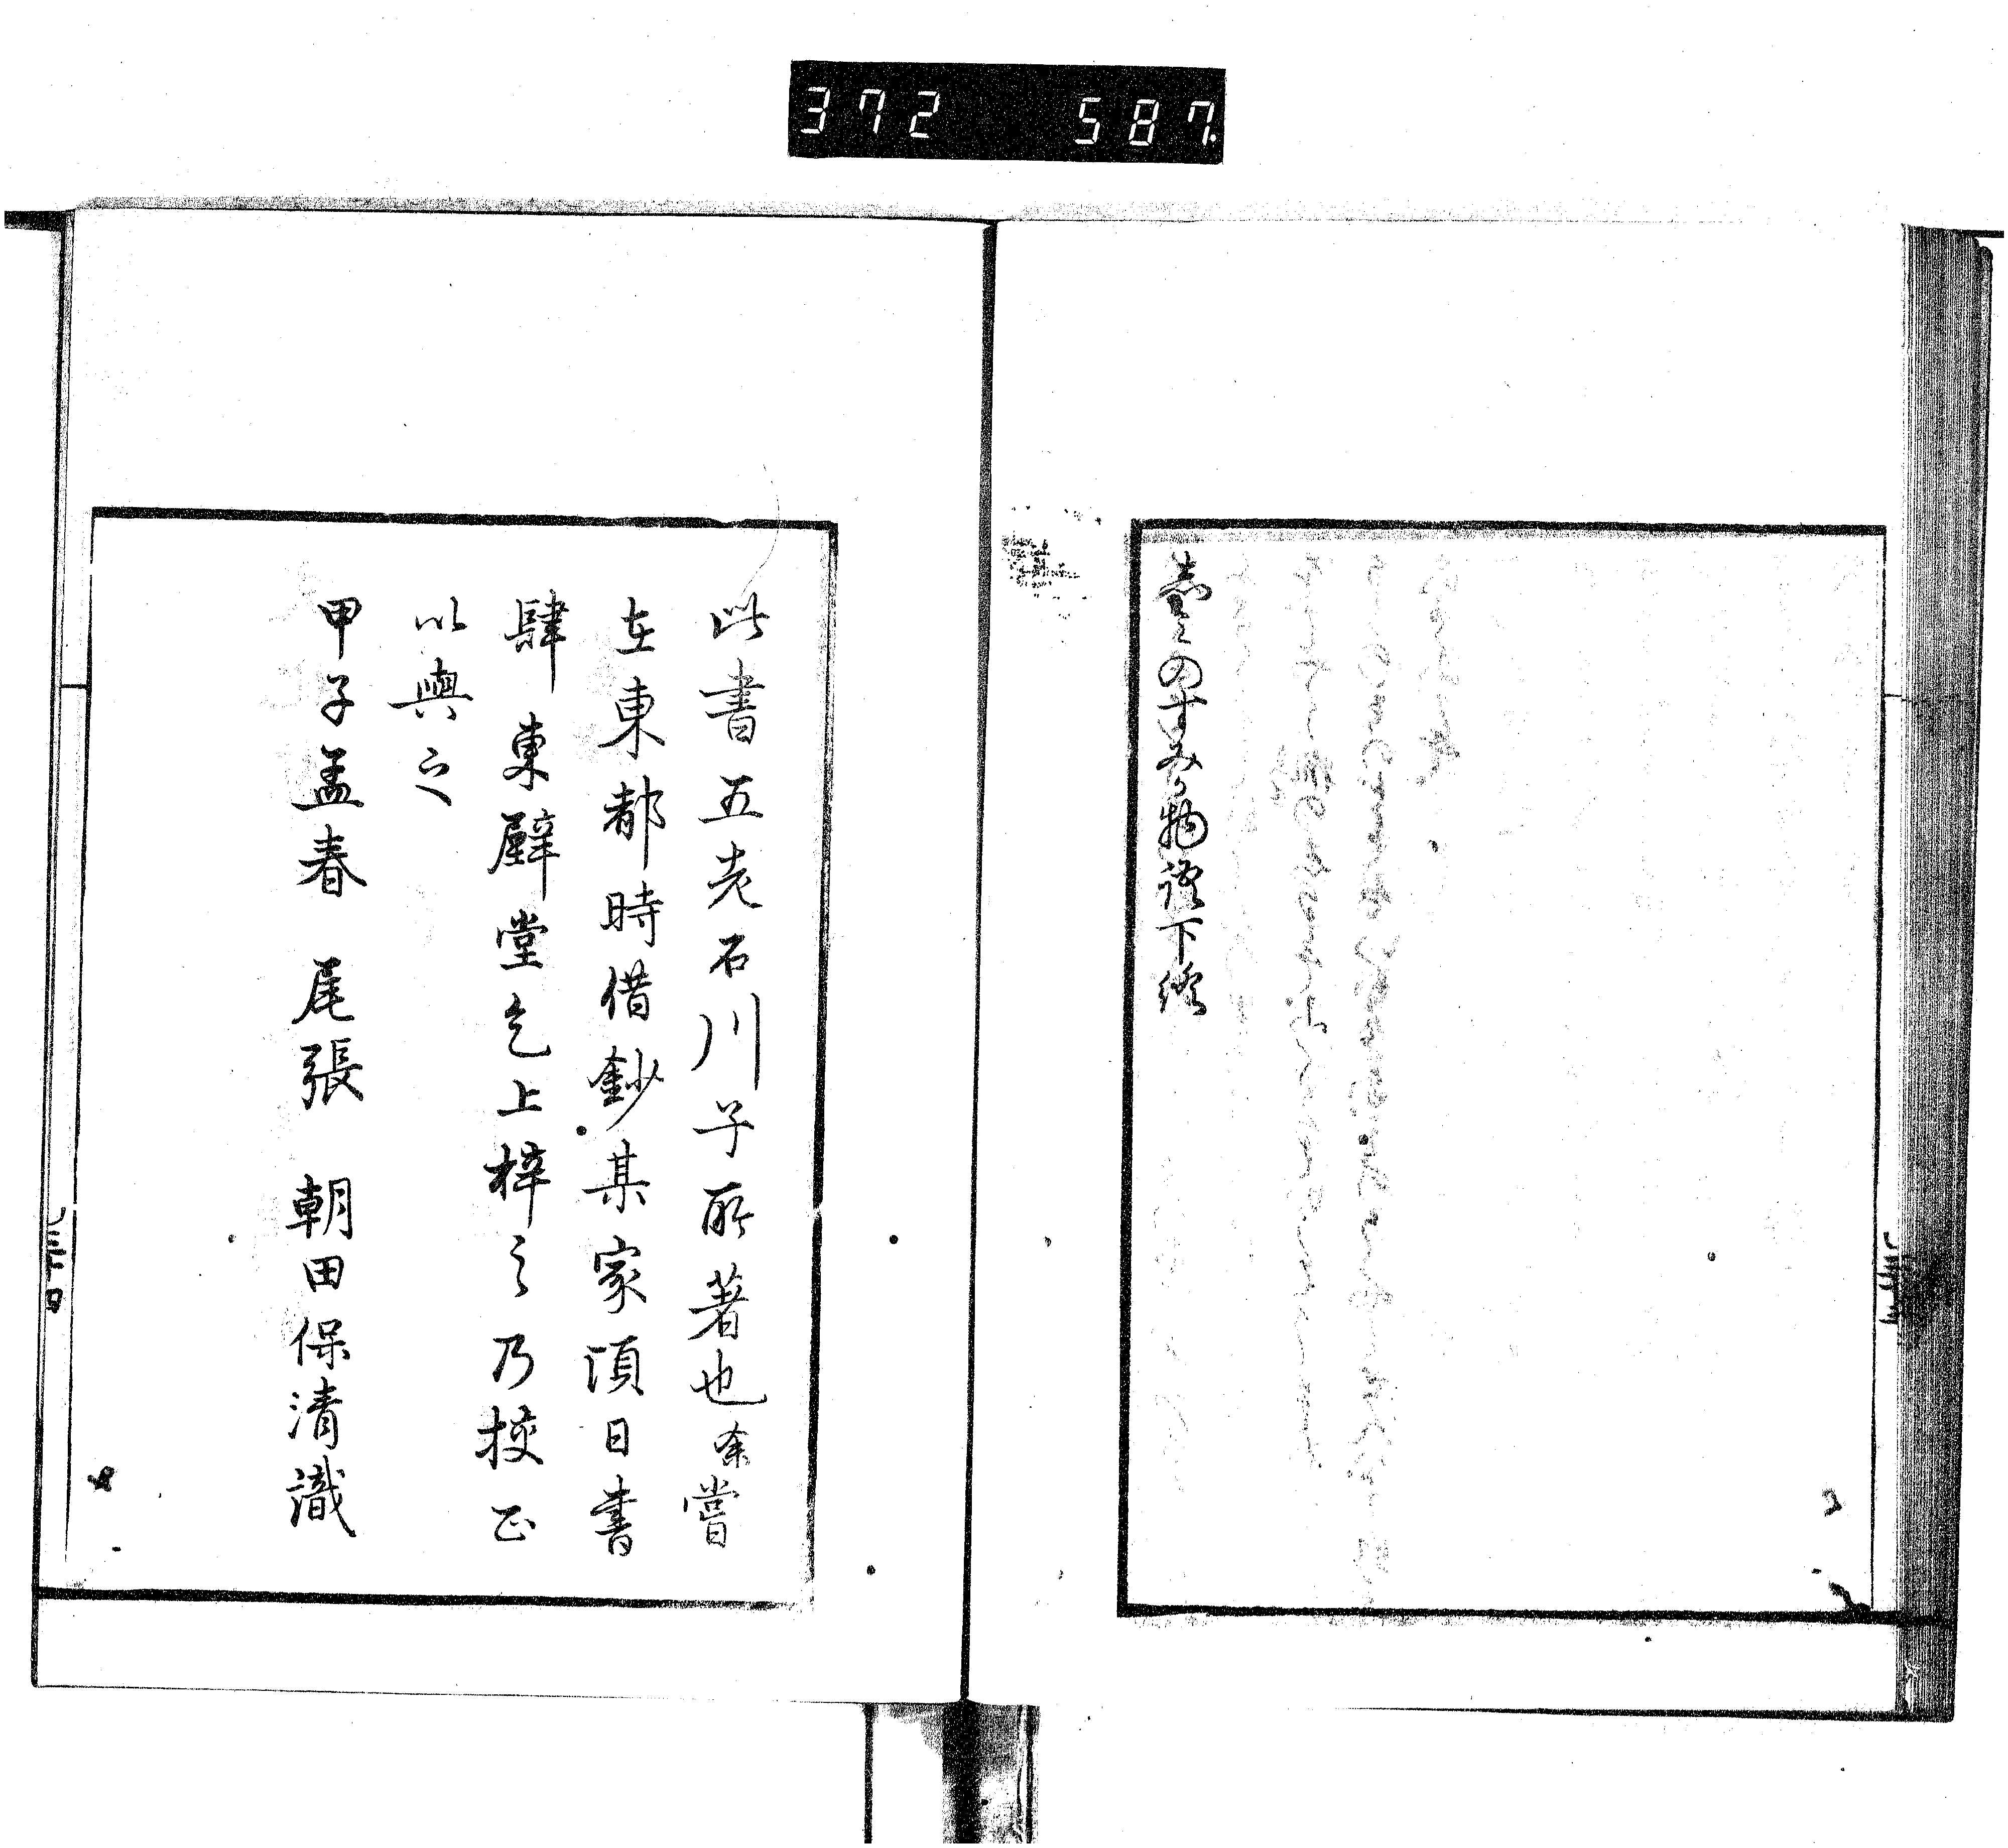 372 587
志みのすみか物語下終
此書五老石川子所著也余嘗
在東都時借鈔某家頃日書
肆東壁堂乞上梓之乃挍正
以與之
甲子孟春 尾張 朝田保清識